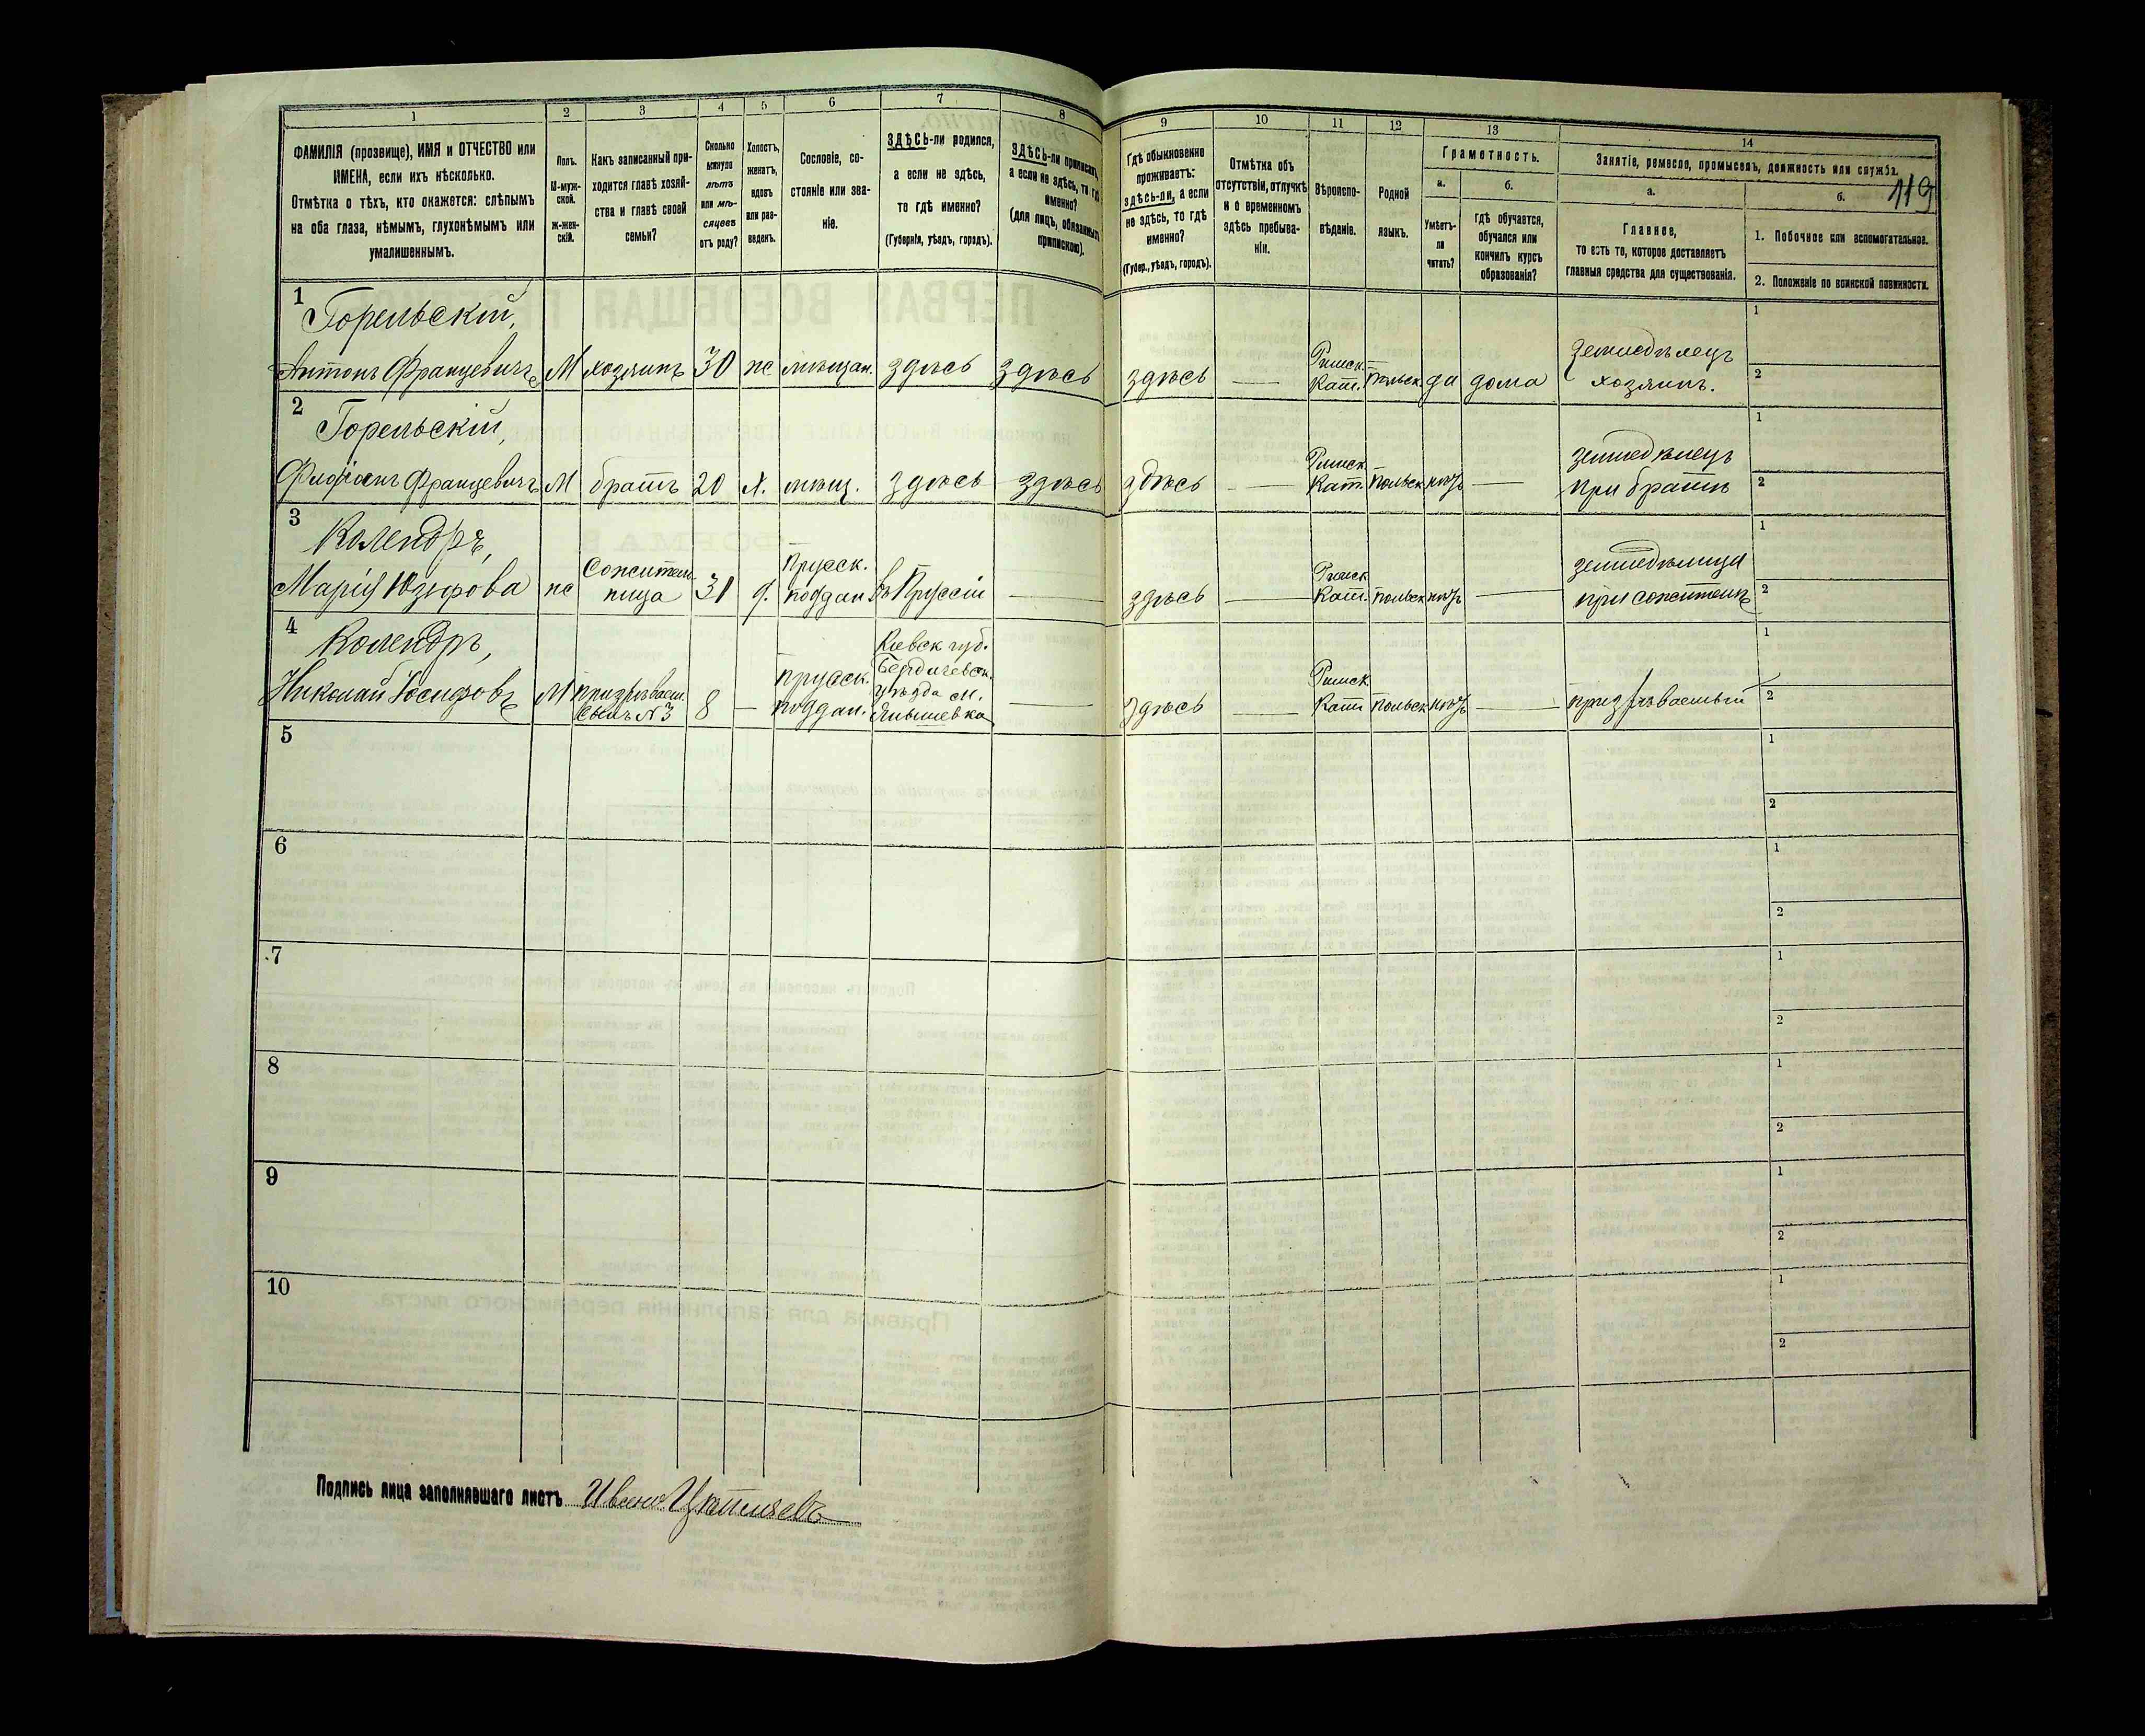 1
2
3
4
5
6
7
8
ФАМИЛІЯ (прозвище), ИМЯ и ОТЧЕСТВО или
ИМЕНА, если ихъ нѣсколько.
Отмѣтка о тѣхъ, кто окажется: слѣпымъ
на оба глаза, нѣмымъ, глухонѣмымъ или
умалишеннымъ.
Полъ.
М-муж-
ской.
Ж-жен-
скій.
Какъ записанный при-
ходится главѣ хозяй-
ства и главѣ своей
семьи?
Сколько
минуло
лѣтъ
или мѣ-
сяцевъ
отъ роду?
Холостъ,
женатъ,
вдовъ
или раз-
веденъ.
Сословіе, со-
стояніе или зва-
ніе.
ЗДѢСЬ-ли родился,
а если не здѣсь,
то гдѣ именно?
(Губернія, уѣздъ, городъ).
ЗДѢСЬ-ли приписанъ,
а если не здѣсь, то гдѣ
именно?
(для лицъ, обязанныхъ
припискою).
9
10
11
12
13
14
Гдѣ обыкновенно
проживаетъ:
здѣсь-ли, а если
не здѣсь, то гдѣ
именно?
(Губер., уѣздъ, городъ).
Отмѣтка объ
отсутствіи, отлучкѣ
и о временномъ
здѣсь пребыва-
ніи.
Вѣроиспо-
вѣданіе.
Родной
языкъ.
Грамотность.
а.
Умѣетъ-
ли
читать?
б.
гдѣ обучается,
обучался или
кончилъ курсъ
образованія?
Занятіе, ремесло, промыселъ, должность или служба.
а.
Главное,
то есть то, которое доставляетъ
главныя средства для существованія.
б.
119
1. Побочное или вспомогательное.
2. Положеніе по воинской повинности.
1
Горельскій,
Антонъ Францевичъ М хозяинъ 30 ж мѣщан. здѣсь здѣсь
здѣсь — Римск. Кат. польск. да дома
земледѣлецъ
хозяинъ.
1
2
2
Горельскій,
Францевичъ М братъ 20 х. мѣщ. здѣсь здѣсь
здѣсь — Римск. Кат. польск. нѣтъ —
земледѣлецъ
при братѣ
1
2
3
Колендръ,
Марія Юзефова ж Сожитель-
ница 31 д. Прусск.
поддан. въ Пруссіи —
здѣсь — Римск. Кат. польск. нѣтъ —
при сожителѣ
1
2
4
Колендръ,
Николай Юзефовъ М призрѣваем.
сынъ №3 8 — прусск.
поддан.
Киевск. губ.
Бердичевск.
уѣзда м.
—
здѣсь — Римск. Кат. польск. нѣтъ —
призрѣваемый
1
2
5
1
2
6
1
2
7
1
2
8
1
2
9
1
2
10
1
2
Подпись лица заполнявшаго листъ Иванъ